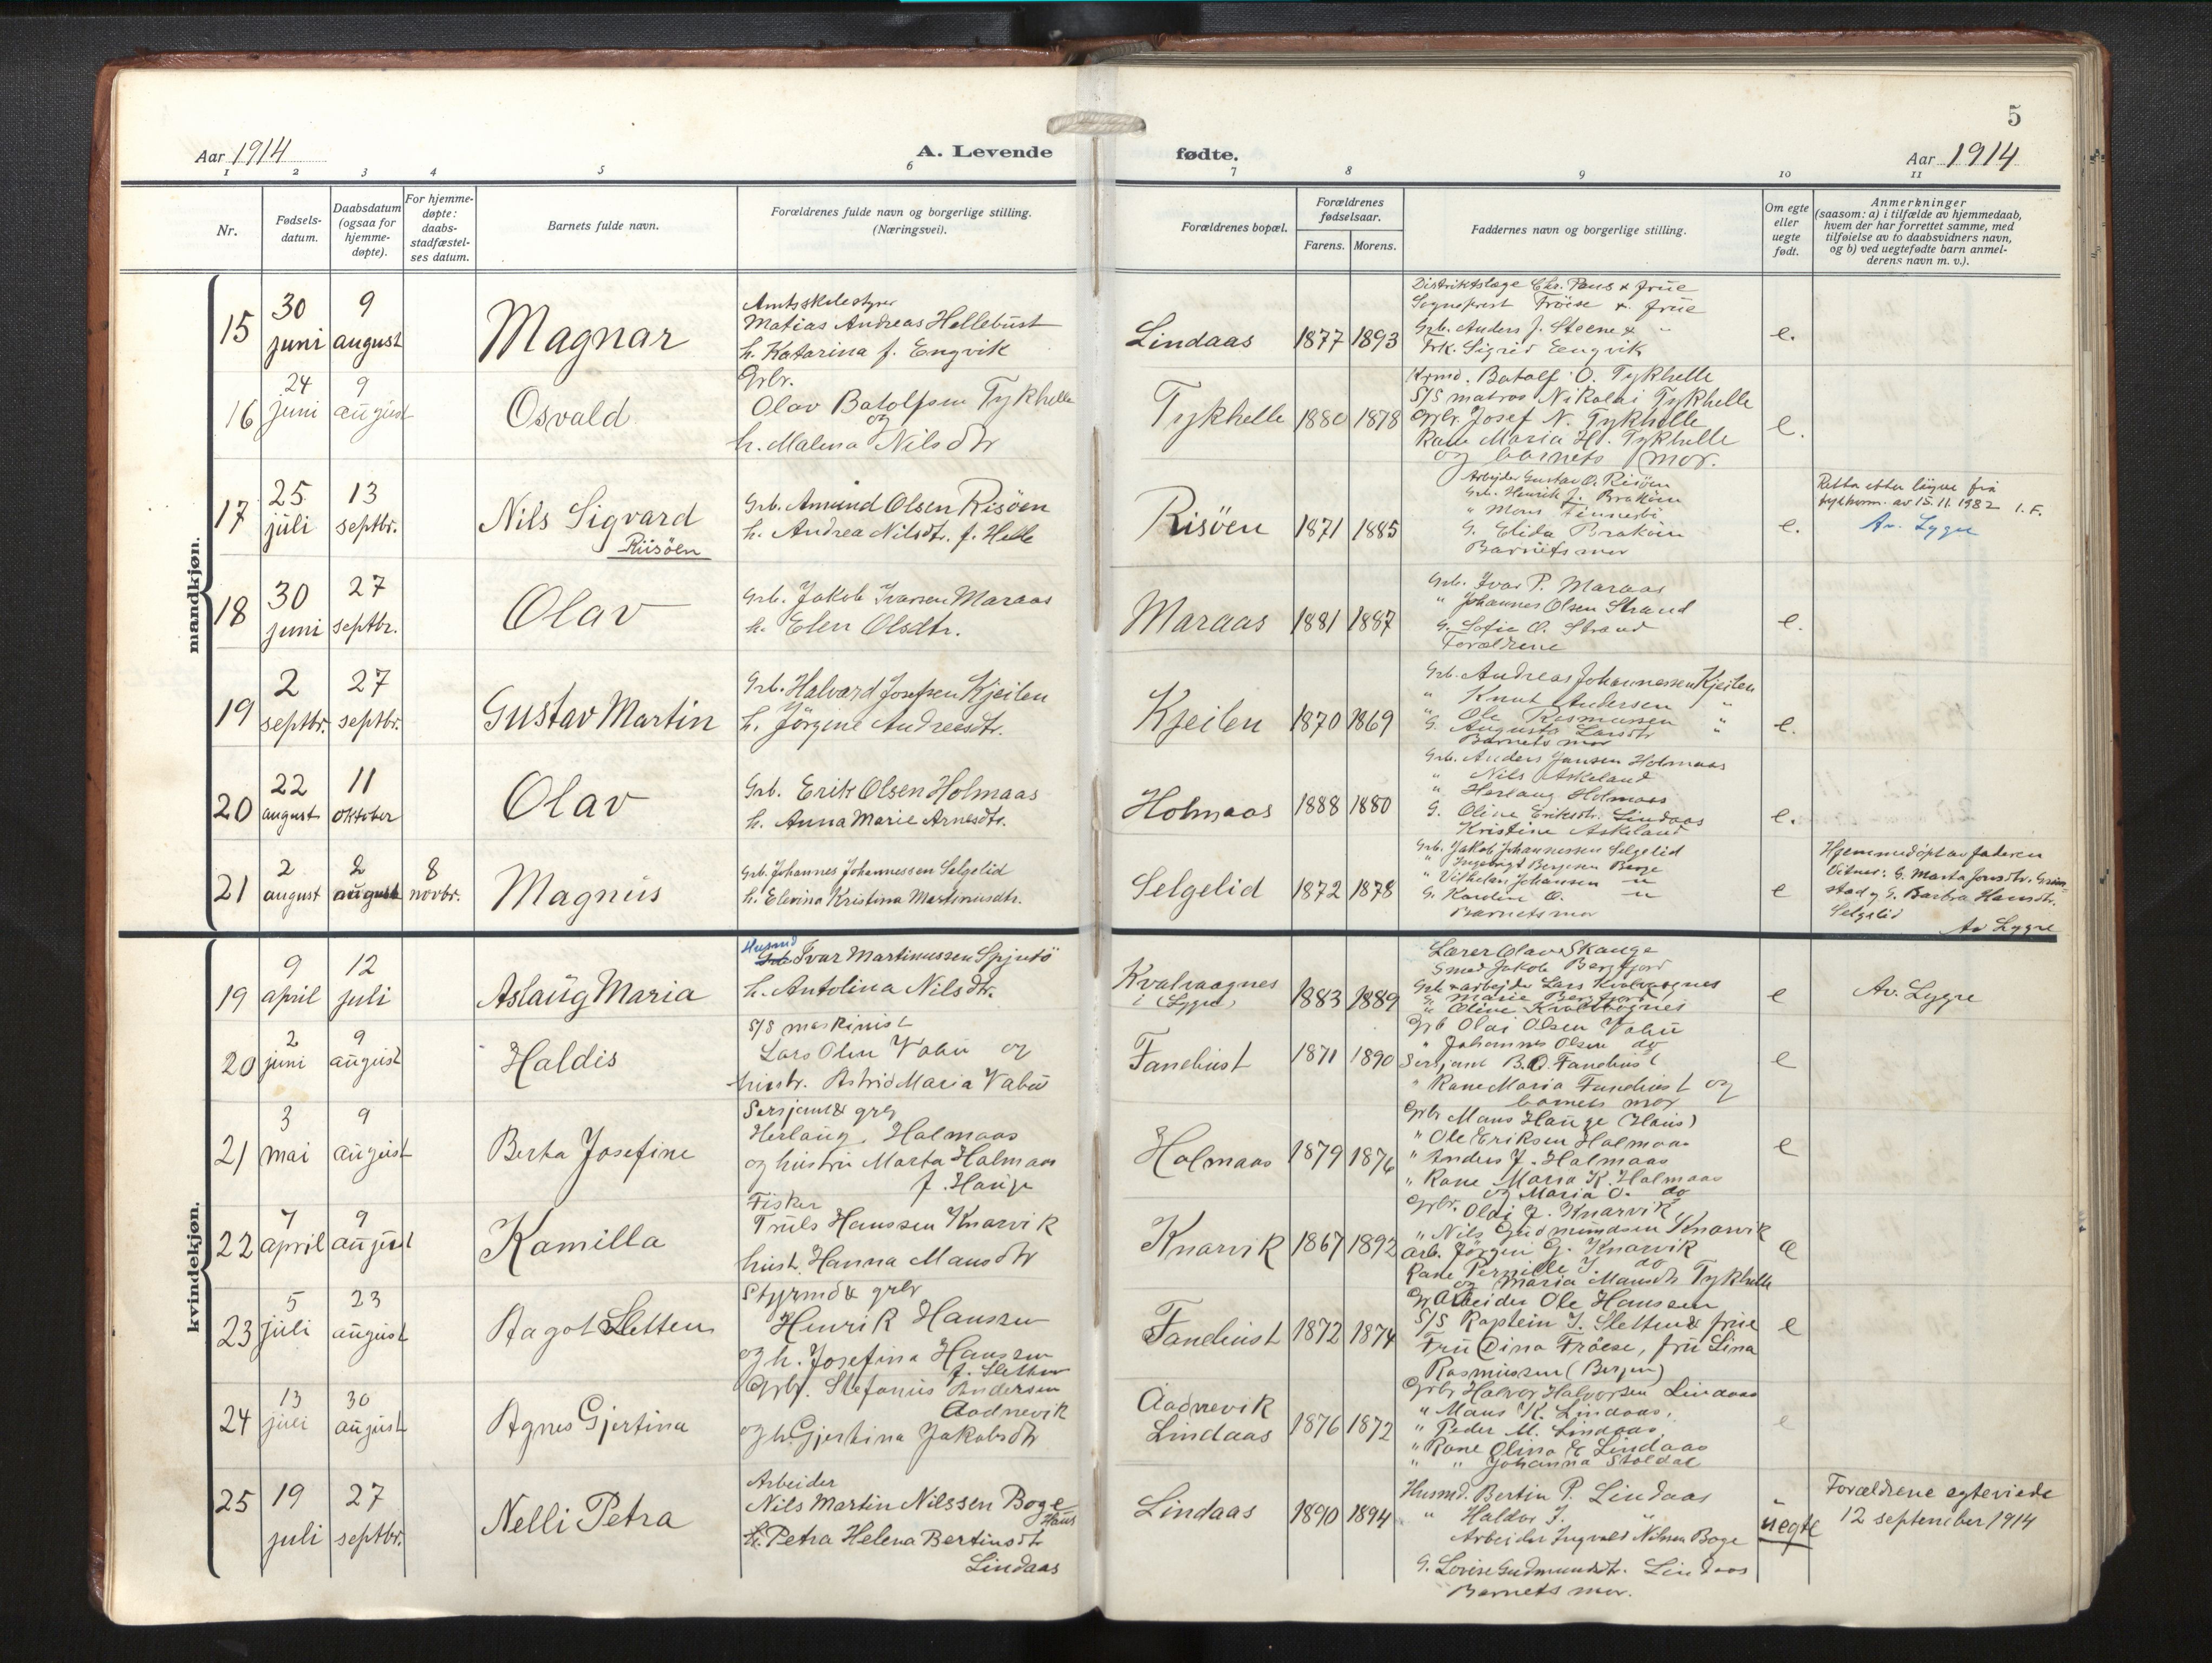 5
Aar 1914
A. Levende fødte.
Aar 1914
1 2 3 4 5 6 7 8 9 10 11
Nr.
Fødsels-
datum.
Daabsdatum
(ogsaa for
hjemme-
døpte).
For hjemme-
døpte:
daabs-
stadfæstel-
ses datum.
Barnets fulde navn.
Forældrenes fulde navn og borgerlige stilling.
(Næringsvei).
Forældrenes bopæl.
Forældrenes
fødselsaar.
Farens. Morens.
Faddernes navn og borgerlige stilling.
Om egte
eller
uegte
født.
Anmerkninger
(saasom: a) i tilfælde av hjemmedaab,
hvem der har forrettet samme, med
tilføielse av to daabsvidners navn,
og b) ved uegtefødte barn anmel-
derens navn m. v.).
mandkjøn.
15
30
juni
9
august
Magnar
Amtsskolestyrer
Matias Andreas Hellebust
h. Katarina f. Engvik
Lindaas
1877 1893
Distriktslæge Chr. Paus & frue
Sogneprest Fröese & frue
Grb. Anders J. Steene & "
Frk. Sigrid Eengvik
e.
16
24
juni
9
august
Osvald
Grbr.
Olav Batolfsen Tykhelle
og
h. Malena Nilsdtr
Tykhelle
1880 1878
Krmd. Batolf O. Tykhelle
S/S matros Nikolai Tykhelle
Grbr. Josef N. Tykhelle
Kone Maria H. Tykhelle
og barnets mor.
e.
17
25
juli
13
septbr.
Nils Sigvard
Riisöen
Grb. Amund Olsen Risöen
h. Andrea Nilsdtr. f. Helle
Risöen
1871 1885
Arbeider Gustav O. Risöen
Grb. Henrik J. Braköen
" Mons
G. Elida Braköen
Barnets mor
e.
Retta etter
av 15.11.1982 I.F.
Av. Lygre
18
30
juni
27
septbr.
Olav
Grb. Jakob Ivarsen Maraas
h. Elen Olsdtr.
Maraas
1881 1887
Grb. Ivar P. Maraas
" Johannes Olsen Strand
G. Sofie O. Strand
Forældrene
e.
19
2
septbr.
27
septbr.
Gustav Martin
Grb. Halvard Josefsen Kjeilen
h. Jörgine Andreasdtr.
Kjeilen
1870 1869
Grb. Andreas Johannessen Kjeilen
" Knut Andersen "
" Ole Rasmussen "
G. Augusta Larsdtr "
Barnets mor
e.
20
22
august
11
oktober
Olav
Grb. Erik Olsen Holmaas
h. Anna Marie Arnesdtr.
Holmaas
1888 1880
Grb. Anders Jansen Holmaas
" Nils Askeland
" Herlaug Holmaas
G. Oline Eriksdtr. Lindaas
Kristine Askeland
e.
21
2
august
2
august
8
novbr.
Magnus
Grb. Johannes Johannessen Selgelid
h. Elevina Kristina Martinusdtr.
Selgelid
1872 1878
Grb. Jakob Johannessen Selgelid
" Ingebrigt Bergesen Berge
" Vilhelm Johansen "
G. Karoline O. "
Barnets mor
e
Hjemmedöpt av faderen
Vitner: G. Marta Jonsdtr. Grim-
stad og G. Barbra Hansdtr.
Selgelid
Av Lygre
kvindekjøn.
19
9
april
12
juli
Aslaug Maria
Husmd
Grb. Ivar Martinussen Spjutö
h. Antolina Nilsdtr.
Kvalvaagnes
i
1883 1889
Lærer Olav Skauge
Smed Jakob Bergfjord
Grb & arbejder Lars Kvalvaagnes
G. Marie Bergfjord
" Oline Kvalvaagnes
e
Av. Lygre
20
2
juni
9
august
Haldis
S/S maskinist
Lars Olsen Vabö og
hustr. Astrid Maria Vabö
Fanebust
1871 1890
Grb Olai Olsen Vabö
" Johannes Olsen do
Serjant B. O. Fanebust
" Kone Maria Fanebust og
barnets mor
e
21
3
mai
9
august
Berta Josefine
Sersjant & grbr
Herlaug Holmaas
og hustru Marta Holmaas
f. Hauge
Holmaas
1879 1876
Grbr Mans Hauge (Haus)
" Ole Eriksen Holmaas
" Anders J. Holmaas
" Kone Maria K. Holmaas
og Maria O. do
e
22
7
april
9
august
Kamilla
Fisker
Truls Hanssen Knarvik
hust. Hanna Mansdtr
Knarvik
1867 1892
Grbr. Olai J. Knarvik
" Nils Gudmundsen Knarvik
Arb. Jörgen G. Knarvik
Kone Pernille J. do
og Maria Mansdtr Tykhelle
e
23
5
juli
23
august
Aagot Sletten
Styrmd & grbr
Henrik Hanssen
og h. Josefina Hanssen
f. Sletten
Fanebust
1872 1874
Arbeider Ole Hanssen
S/S Kaptein J. Sletten & frue
Fru Dina Fröese, fru Lina
Rasmussen (Bergen)
e
24
13
juli
30
august
Agnes Gjertina
Grbr. Stefanus Andersen
Aadnevik
og h. Gjertina Jakobsdtr
Aadnevik
Lindaas
1876 1872
Grbr Halvor Halvorsen Lindaas
" Mans K. Lindaas,
" Peder M. Lindaas,
" Kone Olina E Lindaas
" " Johanna Stoldal
e
25
19
juli
27
septbr.
Nelli Petra
Arbeider
Nils Martin Nilssen Boge
Haus
h. Petra Helena Bertinsdtr
Lindaas
Lindaas
1890 1894
Husmd. Bertin P. Lindaas
" Haldor J. "
Arbeider Ingvald Nilssen Boge
G. Lovise Gudmundsdtr. Lindaas
Barnets mor.
uegte
Forældrene egteviede
12 september 1914